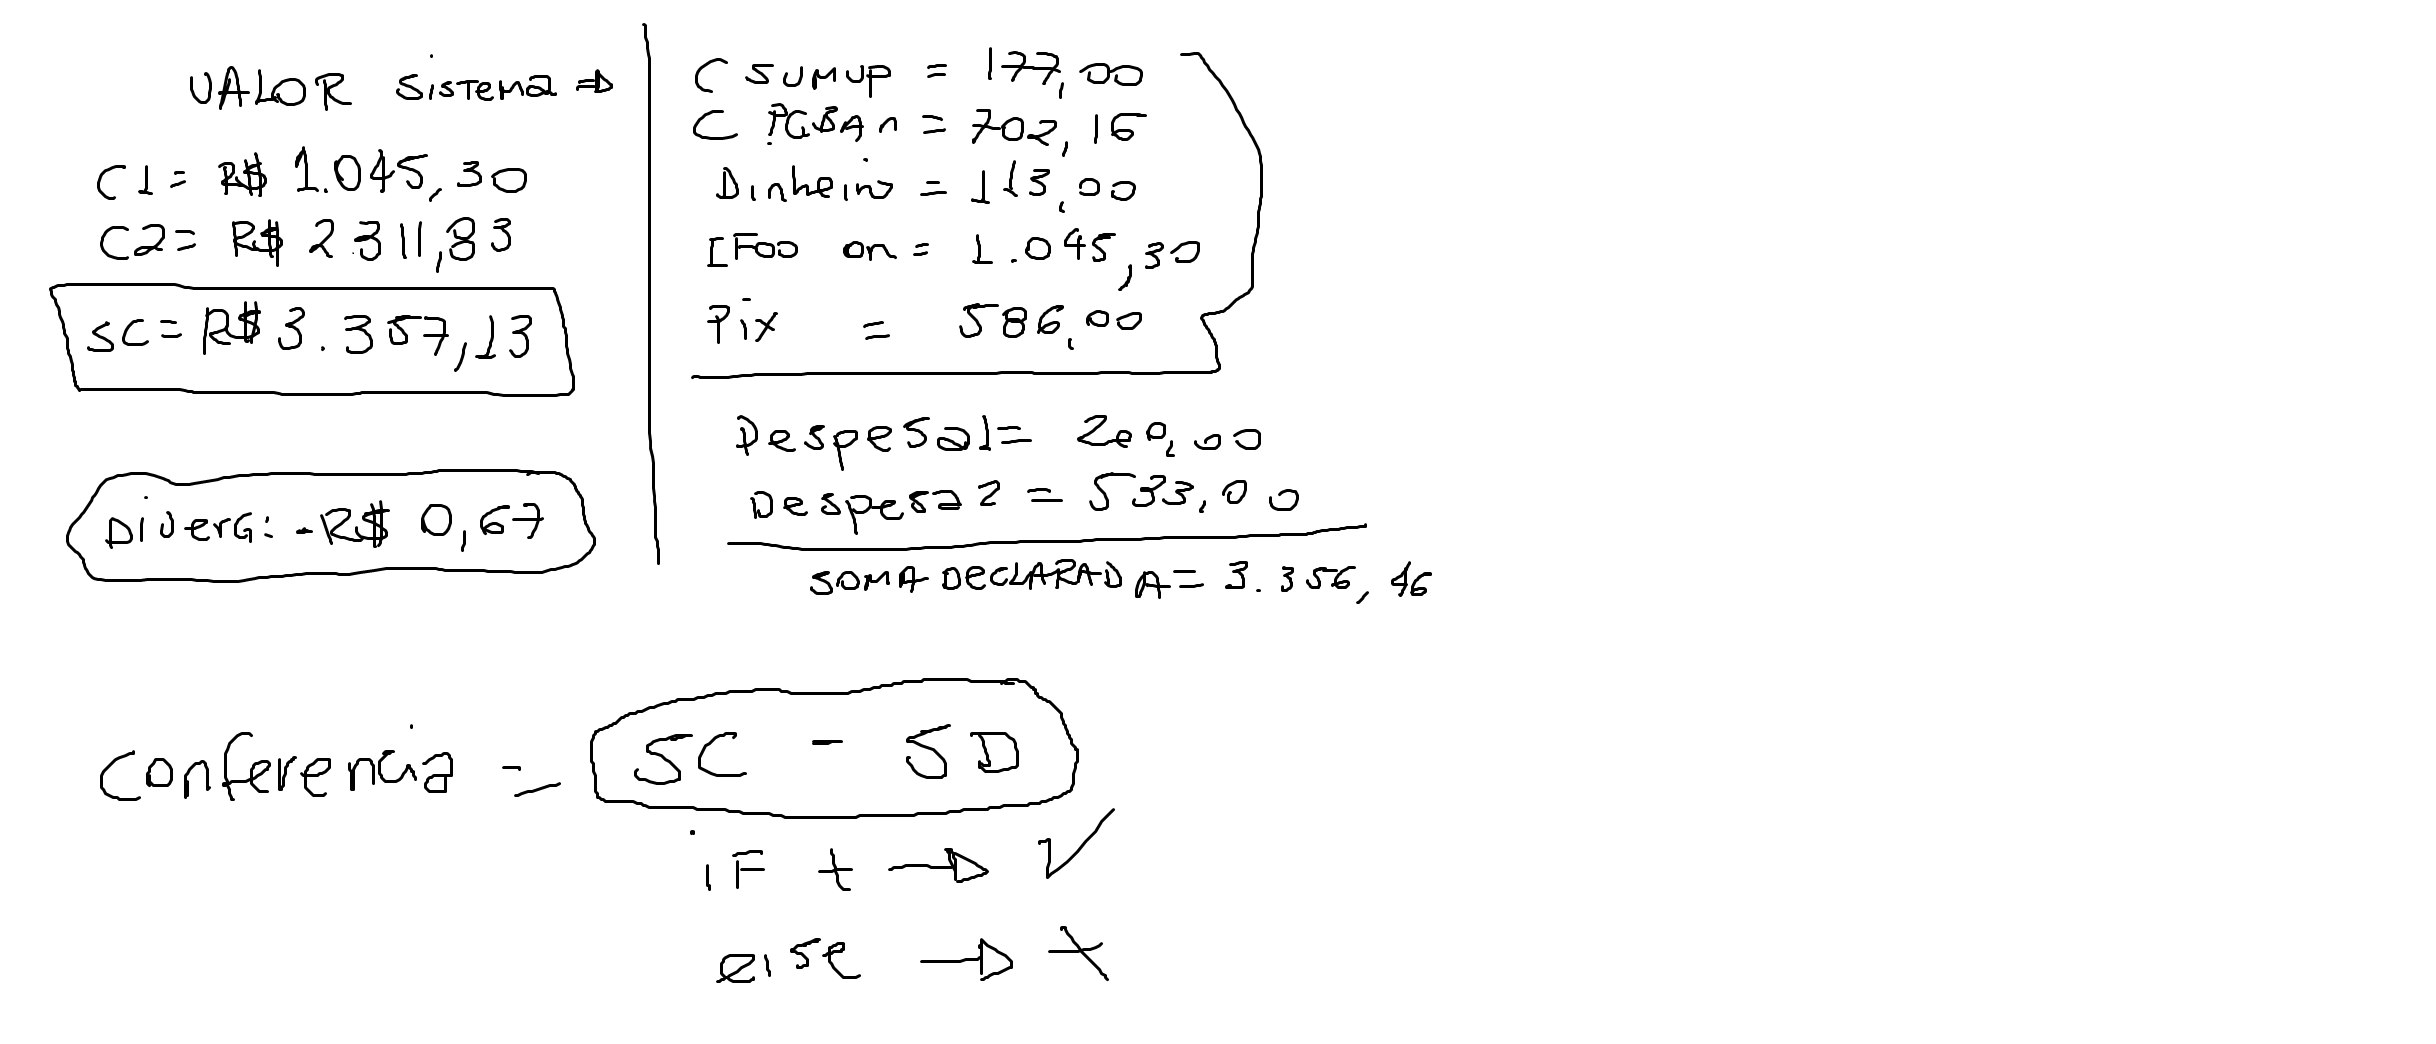 VALOR SISTEMA ⇒
C1 = R$ 1.045,30
C2 = R$ 2.311,83
SC = R$ 3.357,13
DiverG: -R$ 0,67
C SUMUP = 177,00
C PGBAn = 702,16
Dinheiro = 113,00
IFoo on = 1.045,30
Pix = 586,00
Despesa1 = 200,00
Despesa2 = 533,00
SOMA DECLARADA = 3.356,46
Conferencia = SC - SD
iF + → ✓
else → X